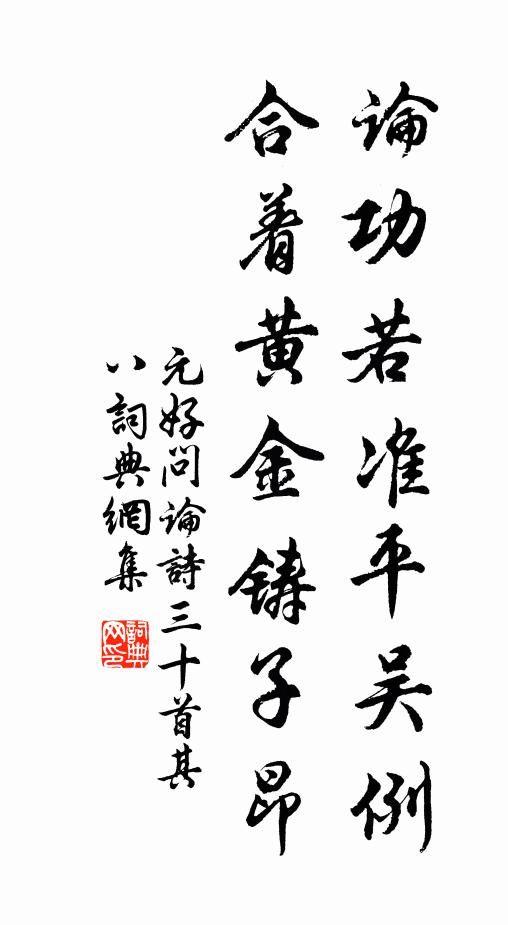 論功若准平吴例
合着黄金鋳子昂
元好问論詩三十首其
八詞典網集
詞典
网印